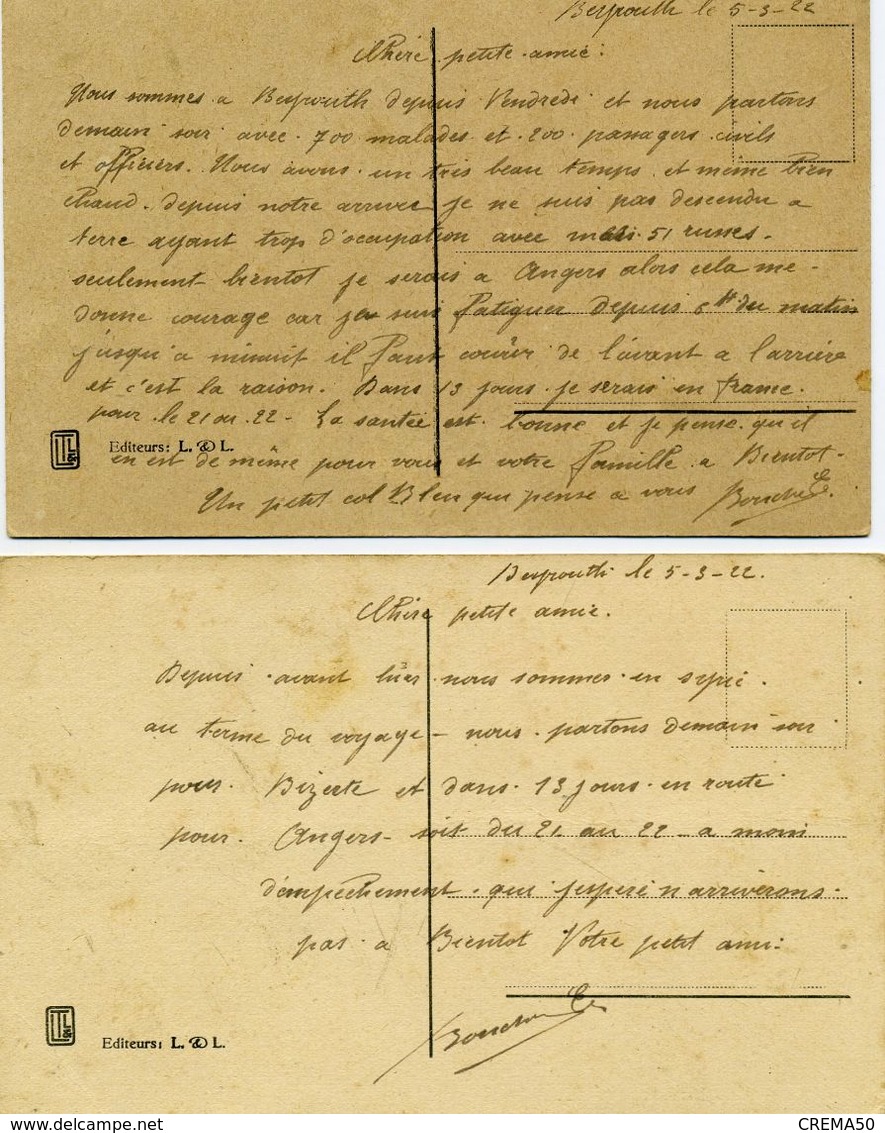 Beyrouth le 5-3-22
Chère petite amie:
Nous sommes a Beyrouth depuis Vendredi et nous partons
demain soir avec 700 malades et 200 passagers civils
et officiers. Nous avons un tres beau temps et même bien
chaud. depuis notre arrivée je ne suis pas descendu a
terre ayant trop d'occupation avec mes 51 russes.
seulement bientot je serais a Angers alors cela me
donne courage car je suis fatiguer depuis 6 H du matin
jusqu'a minuit il faut courir de l'avant a l'arrière
et c'est la raison. Dans 13 jours je serais en france.
pour le 21 au 22 - La santée est bonne et je pense qu'il
Editeurs: L. & L.
en est de même pour vous et votre famille a Bientot -
Un petit col Bleu qui pense a vous
Beyrouth le 5-3-22.
Chère petite amie.
Depuis avant hier nous sommes en syrie.
au terme du voyage - nous partons demain soir
pour Bizerte et dans 13 jours en route
pour Angers - soit du 21 au 22 - a moin
d'empêchement que j'espère n'arriverons
pas a Bientot Votre petit ami
Editeurs: L. & L.
www.delcampe.net
CREMA50